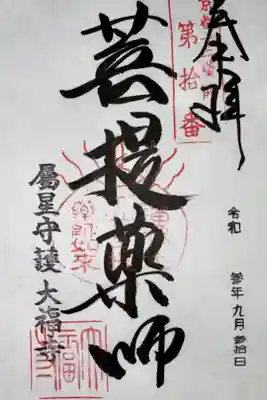 奉拝
第拾番
菩提薬師
屬星守護 大福寺
令和 参年九月参拾日